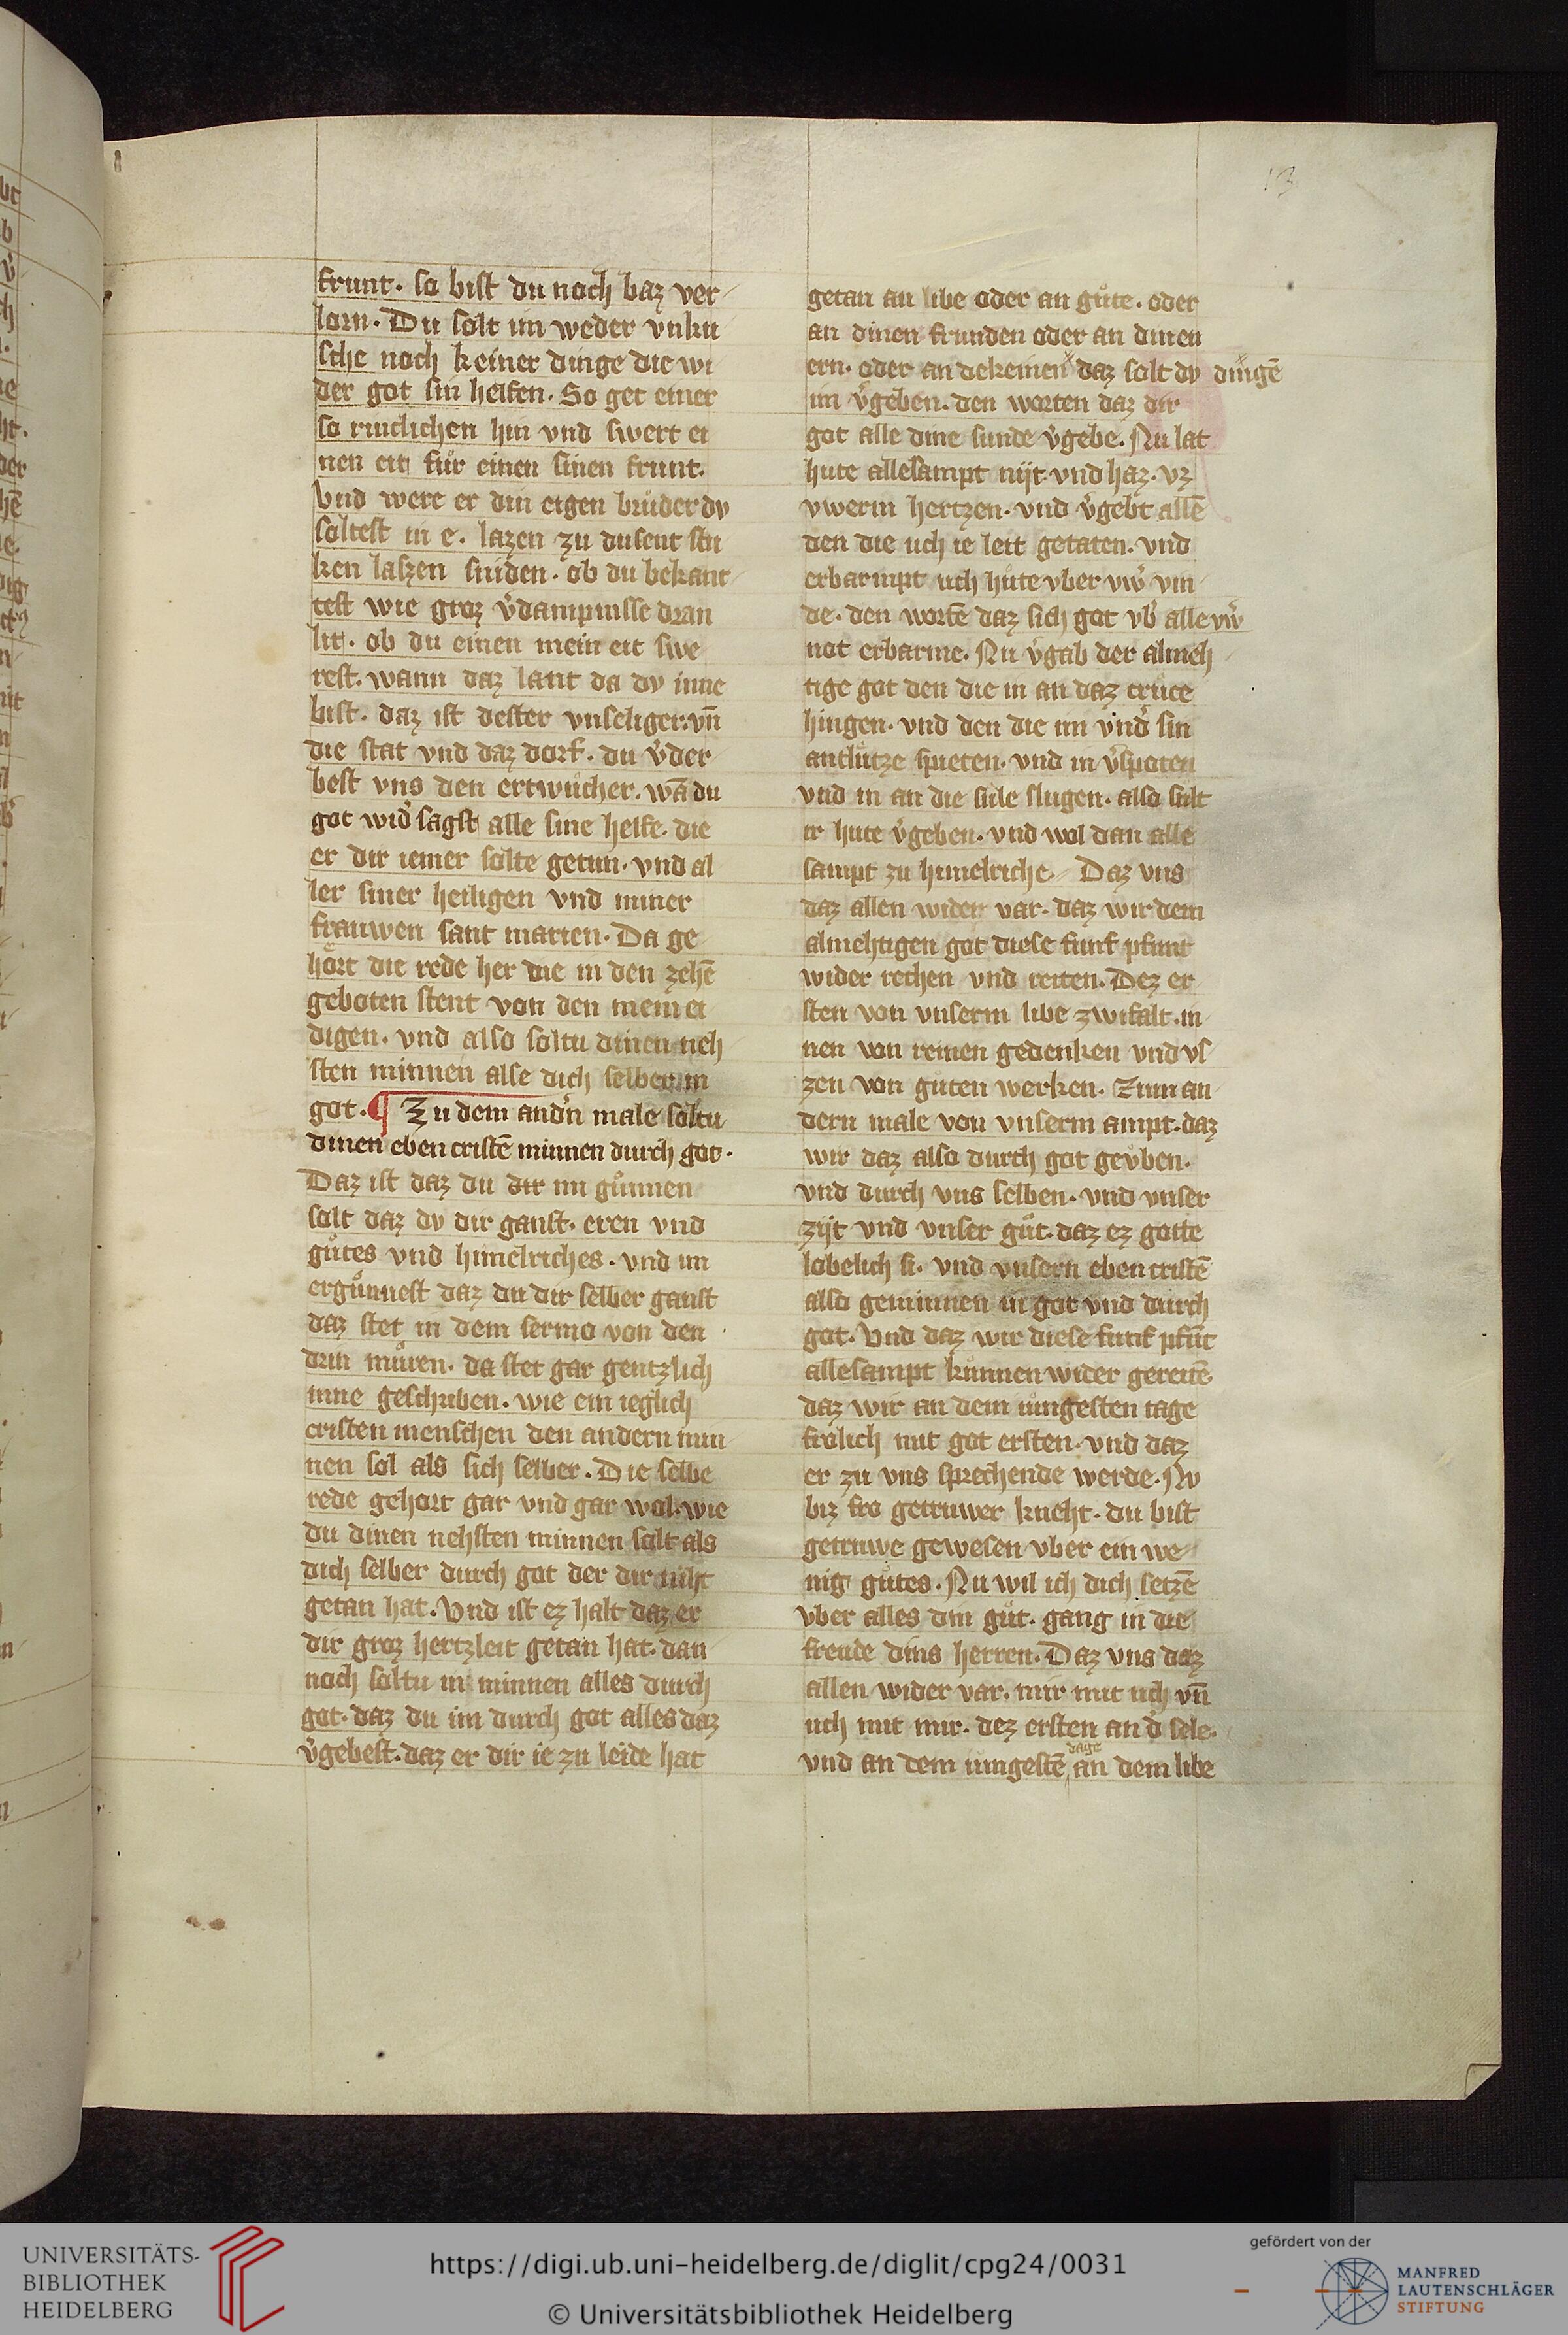 13
frunt. so bist du noch baz ver
lorn. Du solt im weder vnku
sche noch keiner dinge die wi
der got sin helfen. So get einer
so rinclichen hin vnd swert ei
nen eit fuͤr einen sinen frunt.
Vnd were er din eigen bruͦder dv
soltest in e. lazen zu dusent stu
ken laszen sniden. ob du bekant
test wie groz v̓dampnisse dran
lit. ob du einen mein eit swe
rest. wann daz lant da dv inne
bist. daz ist dester vnseliger. vn̄
die stat vnd daz dorf. du v̓der
best vns den ertwuͦcher. wā du
got wid̓ sagst alle sine helfe. die
er dir iemer solte getun. vnd al
ler siner heiligen vnd miner
frauwen sant marien. Da ge
hoͤrt die rede her die in den zehē
geboten stent von den mein ei
digen. vnd also soltu dinen neh
sten minnen alse dich selber in
got. ¶ Zu dem and̓n male soltu
dinen eben cristē minnen durch got.
Daz ist daz du dir im guͤnnen
solt daz dv dir ganst. eren vnd
guͦtes vnd himelriches. vnd im
erguͤnnest daz du dir selber ganst
daz stet in dem sermo von den
drin muͦren. da stet gar gentzlich
inne geschriben. wie ein ieglich
cristen menschen den andern min
nen sol als sich selber. Die selbe
rede gehort gar vnd gar wol. wie
du dinen nehsten minnen solt als
dich selber durch got der dir niht
getan hat. Vnd ist ez halt daz er
dir groz hertzleit getan hat. dan
noch soltu in minnen alles durch
got. daz du im durch got alles daz
v̓gebest. daz er dir ie zu leide hat
getan an libe oder an guͦte. oder
an dinen frunden oder an dinen
ern. oder an dekeinen daz solt dv dingē
im v̓geben. den worten daz dir
got alle dine sunde v̓gebe. Nu lat
hute allesampt nijt vnd haz. vz
vwerm hertzen. vnd v̓gebt allē
den die uch ie leit getaten. vnd
erbarmpt uch huͤte vber vw̓ vin
de. den wortē daz sich got vb̓ alle vw̓
not erbarme. Nu v̓gab der almeh
tige got den die in an daz cruce
hingen. vnd den die im vnd̓ sin
antlutze spieten. vnd in v̓spoten
vnd in an die sule slugen. also sult
ir hute v̓geben. vnd wol dan alle
sampt zu himelriche. Daz vns
daz allen wider var. daz wir dem
almehtigen got diese funf pfunt
wider rechen vnd reiten. Dez er
sten von vnserm libe zwifalt. in
nen von reinen gedenken vnd vs
zen von guͦten werken. Zum an
dern male von vnserm ampt. daz
wir daz also durch got geuͤben.
vnd durch vns selben. vnd vnser
zijt vnd vnser guͦt. daz ez gotte
lobelich si. vnd vnsern eben cristē
also geminnen in got vnd durch
got. Vnd daz wir diese funf pfūt
allesampt kuͤnnen wider gereitē
daz wir an dem iungesten tage
frolich mit got ersten. vnd daz
er zu vns sprechende werde. Nv
biz fro getruwer kneht. du bist
getruwe gewesen vber ein we
nig guͦtes. Nu wil ich dich setzē
vber alles din guͦt. gang in die
freude dins herren. Daz vns daz
allen wider var. mir mit uch vn̄
uch mit mir. dez ersten an d̓ sele.
vnd an dem iungestē dage an dem libe
UNIVERSITÄTS-
BIBLIOTHEK
HEIDELBERG
https://digi.ub.uni-heidelberg.de/diglit/cpg24/0031
© Universitätsbibliothek Heidelberg
gefördert von der
MANFRED
LAUTENSCHLÄGER
STIFTUNG